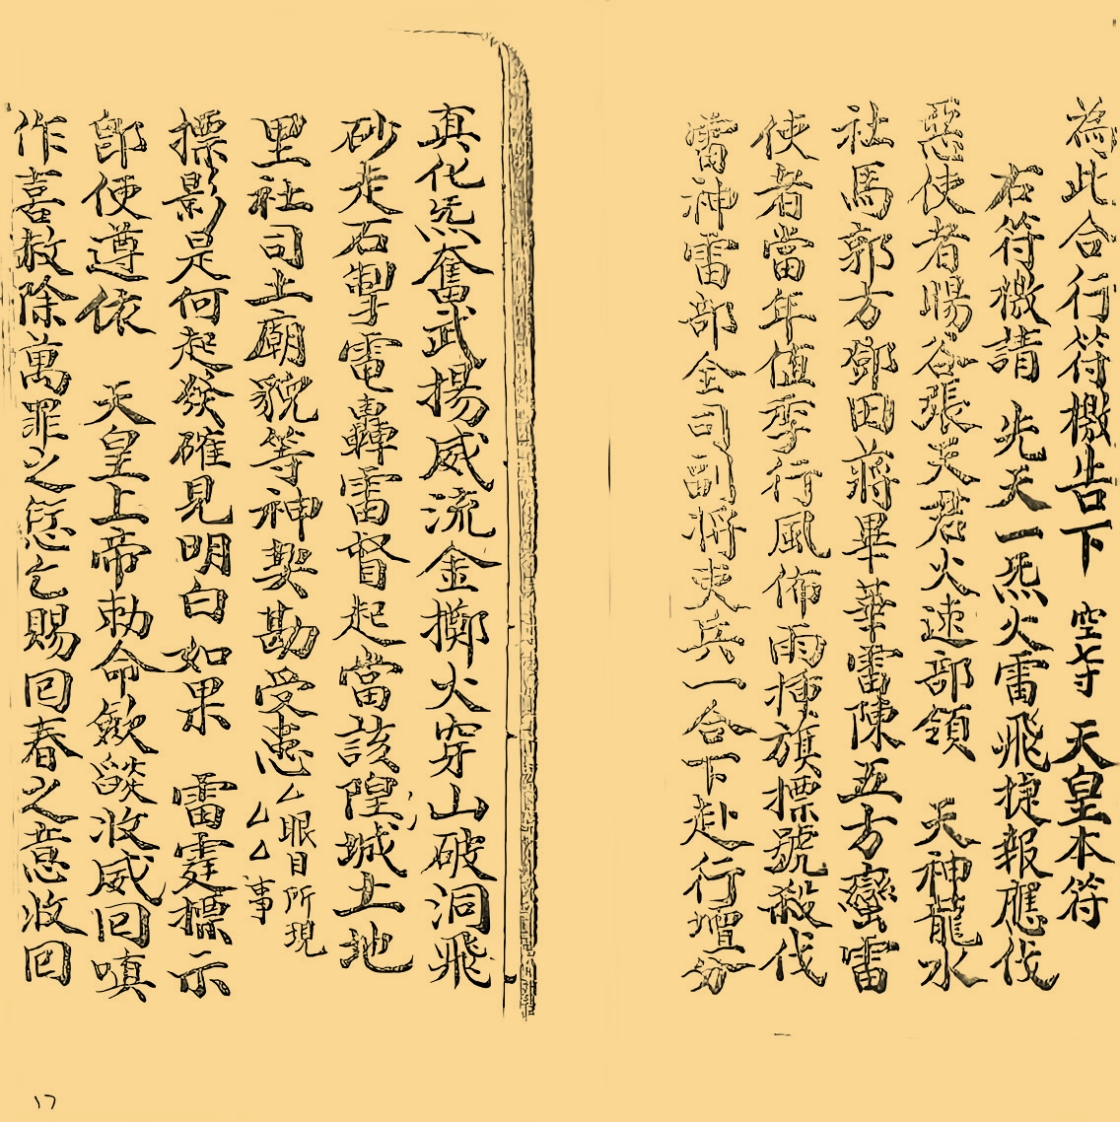 為此合行符檄告下 空等 天皇本符
右符檄請 先天一炁火雷飛捷報應伐
惡使者暘谷張天君火速部領 天神龍水
社馬郭方鄧田蔣畢華雷陳五方蠻雷
使者當年值季行風佈雨捶旗標號殺伐
雷神雷部金司副將吏兵一合下赴行壇分
真化炁奮武揚威流金擲火穿山破洞飛
砂走石掣電轟雷督起當該隍城土地
里社司土廟貌等神契勘受患厶眼目所現
厶厶事
摽影是何起發確見明白如果 雷霆標示
即便遵依 天皇上帝勅命歛燄收威回嗔
作喜赦除萬罪之愆乞賜回春之意收回
17